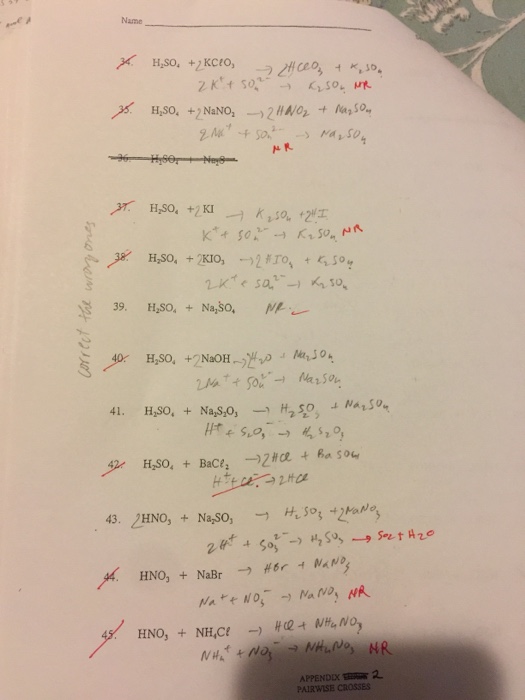 Name
34. H₂SO₄ + 2KClO₃ → 2HClO₃ + K₂SO₄
2K⁺ + SO₄²⁻ → K₂SO₄ NR
35. H₂SO₄ + 2NaNO₂ → 2HNO₂ + Na₂SO₄
2Na⁺ + SO₄²⁻ → Na₂SO₄
NR
36. H₂SO₄ + Na₂S
37. H₂SO₄ + 2KI → K₂SO₄ + 2HI
K⁺ + SO₄²⁻ → K₂SO₄ NR
correct the wrong ones
38. H₂SO₄ + 2KIO₃ → 2HIO₃ + K₂SO₄
2K⁺ + SO₄²⁻ → K₂SO₄
39. H₂SO₄ + Na₂SO₄ NR ✓
40. H₂SO₄ + 2NaOH → 2H₂O + Na₂SO₄
2Na⁺ + SO₄²⁻ → Na₂SO₄
41. H₂SO₄ + Na₂S₂O₃ → H₂SO₃ + Na₂SO₄
H⁺ + S₂O₃⁻ → H₂S₂O₃
42. H₂SO₄ + BaCl₂ → 2HCl + BaSO₄
H⁺ + Cl⁻ → 2HCl
43. 2HNO₃ + Na₂SO₃ → H₂SO₃ + 2NaNO₃
2H⁺ + SO₃²⁻ → H₂SO₃ → SO₂ + H₂O
44. HNO₃ + NaBr → HBr + NaNO₃
Na⁺ + NO₃⁻ → NaNO₃ NR
45. HNO₃ + NH₄Cl → HCl + NH₄NO₃
NH₄⁺ + NO₃⁻ → NH₄NO₃ NR
APPENDIX 2
PAIRWISE CROSSES